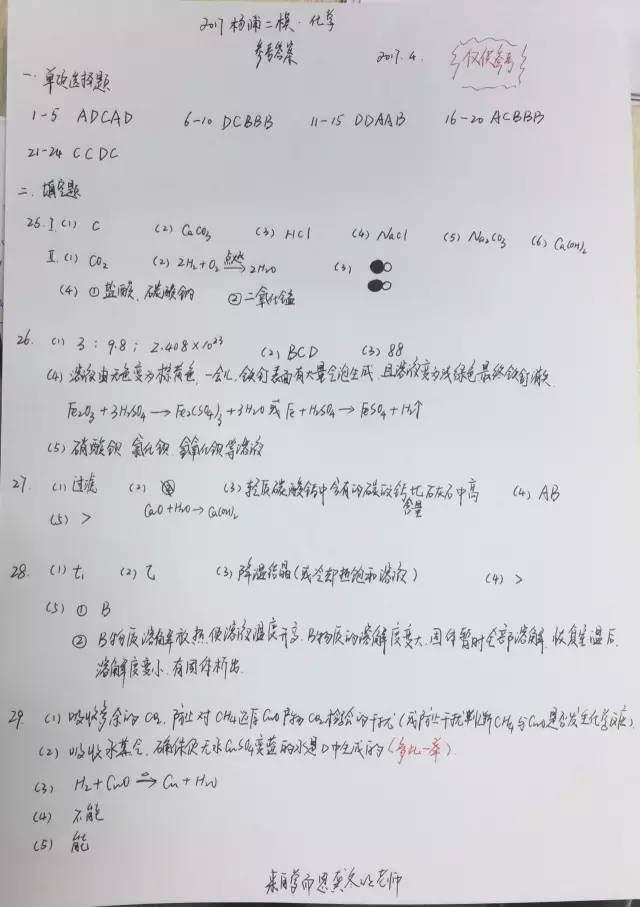 2017 杨浦二模·化学
参考答案 2017.4. 仅供参考
一.单项选择题
1-5 ADCAD 6-10 DCBBB 11-15 DDAAB 16-20 ACBBB
21-24 CCDC
二.填空题
25.I.(1) C (2) CaCO3 (3) HCl (4) NaCl (5) Na2CO3 (6) Ca(OH)2
II.(1) CO2 (2) 2H2+O2 点燃→ 2H2O (3)
(4) ①盐酸、碳酸钠 ②二氧化锰
26. (1) 3; 9.8; 2.408×10^23 (2) BCD (3) 88
(4) 溶液由无色变为棕黄色,一会儿,铁钉表面有大量气泡生成,且溶液变为浅绿色最终铁钉消失
Fe2O3+3H2SO4→Fe2(SO4)3+3H2O 或 Fe+H2SO4→FeSO4+H2↑
(5) 硝酸钡 氯化钡 氢氧化钡等溶液
27. (1) 过滤 (2) CaO+H2O→Ca(OH)2 (3) 轻质碳酸钙中含有的碳酸钙含量比石灰石中高 (4) AB
(5) >
28. (1) t1 (2) 乙 (3) 降温结晶(或冷却热饱和溶液) (4) >
(5) ① B
② B物质溶解放热,使溶液温度升高,B物质的溶解度变大,固体暂时全部溶解,恢复室温后,
溶解度变小,有固体析出.
29. (1) 吸收多余的CO2,防止对CH4还原CuO产物CO2检验的干扰(或防止干扰判断CH4与CuO是否发生化学反应).
(2) 吸收水蒸气,确保使无水CuSO4变蓝的水是D中生成的(多此一举).
(3) H2+CuO △→ Cu+H2O
(4) 不能
(5) 能
老师